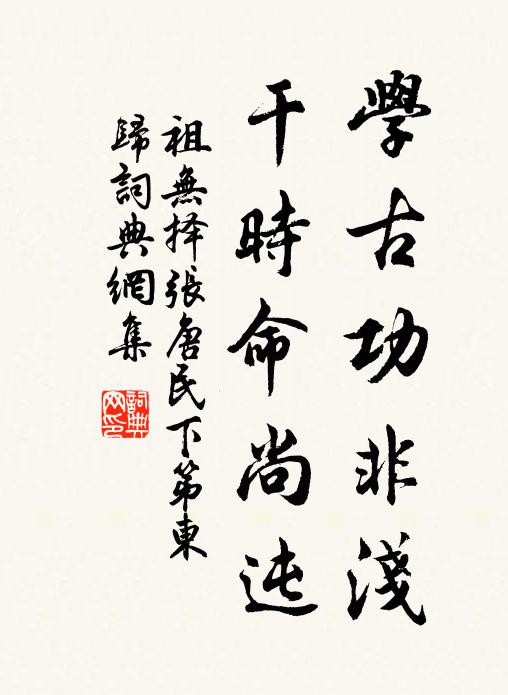 學古功非淺
干時命尚迍
祖無择張唐民下第東
歸詞典網集
詞典
网印